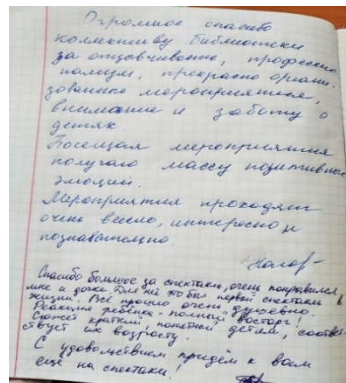 Огромное спасибо
коллективу библиотеки
за отзывчивость, професио-
нализм, прекрасно органи-
зованные мероприятия,
внимание и заботу о
детях
Посещая мероприятия
получаю массу позитивных
эмоций.
Мероприятия проходят
очень весело, интересно и
познавательно.
Спасибо большое за спектакль, очень понравился,
мне и дочке. Для неё это был первый спектакль в
жизни. Всё прошло очень душевно.
Реакция ребёнка - полный восторг!
Сюжет краткий, понятный детям, соответ-
ствует их возрасту.
С удовольствием придём к вам
ещё на спектакли!